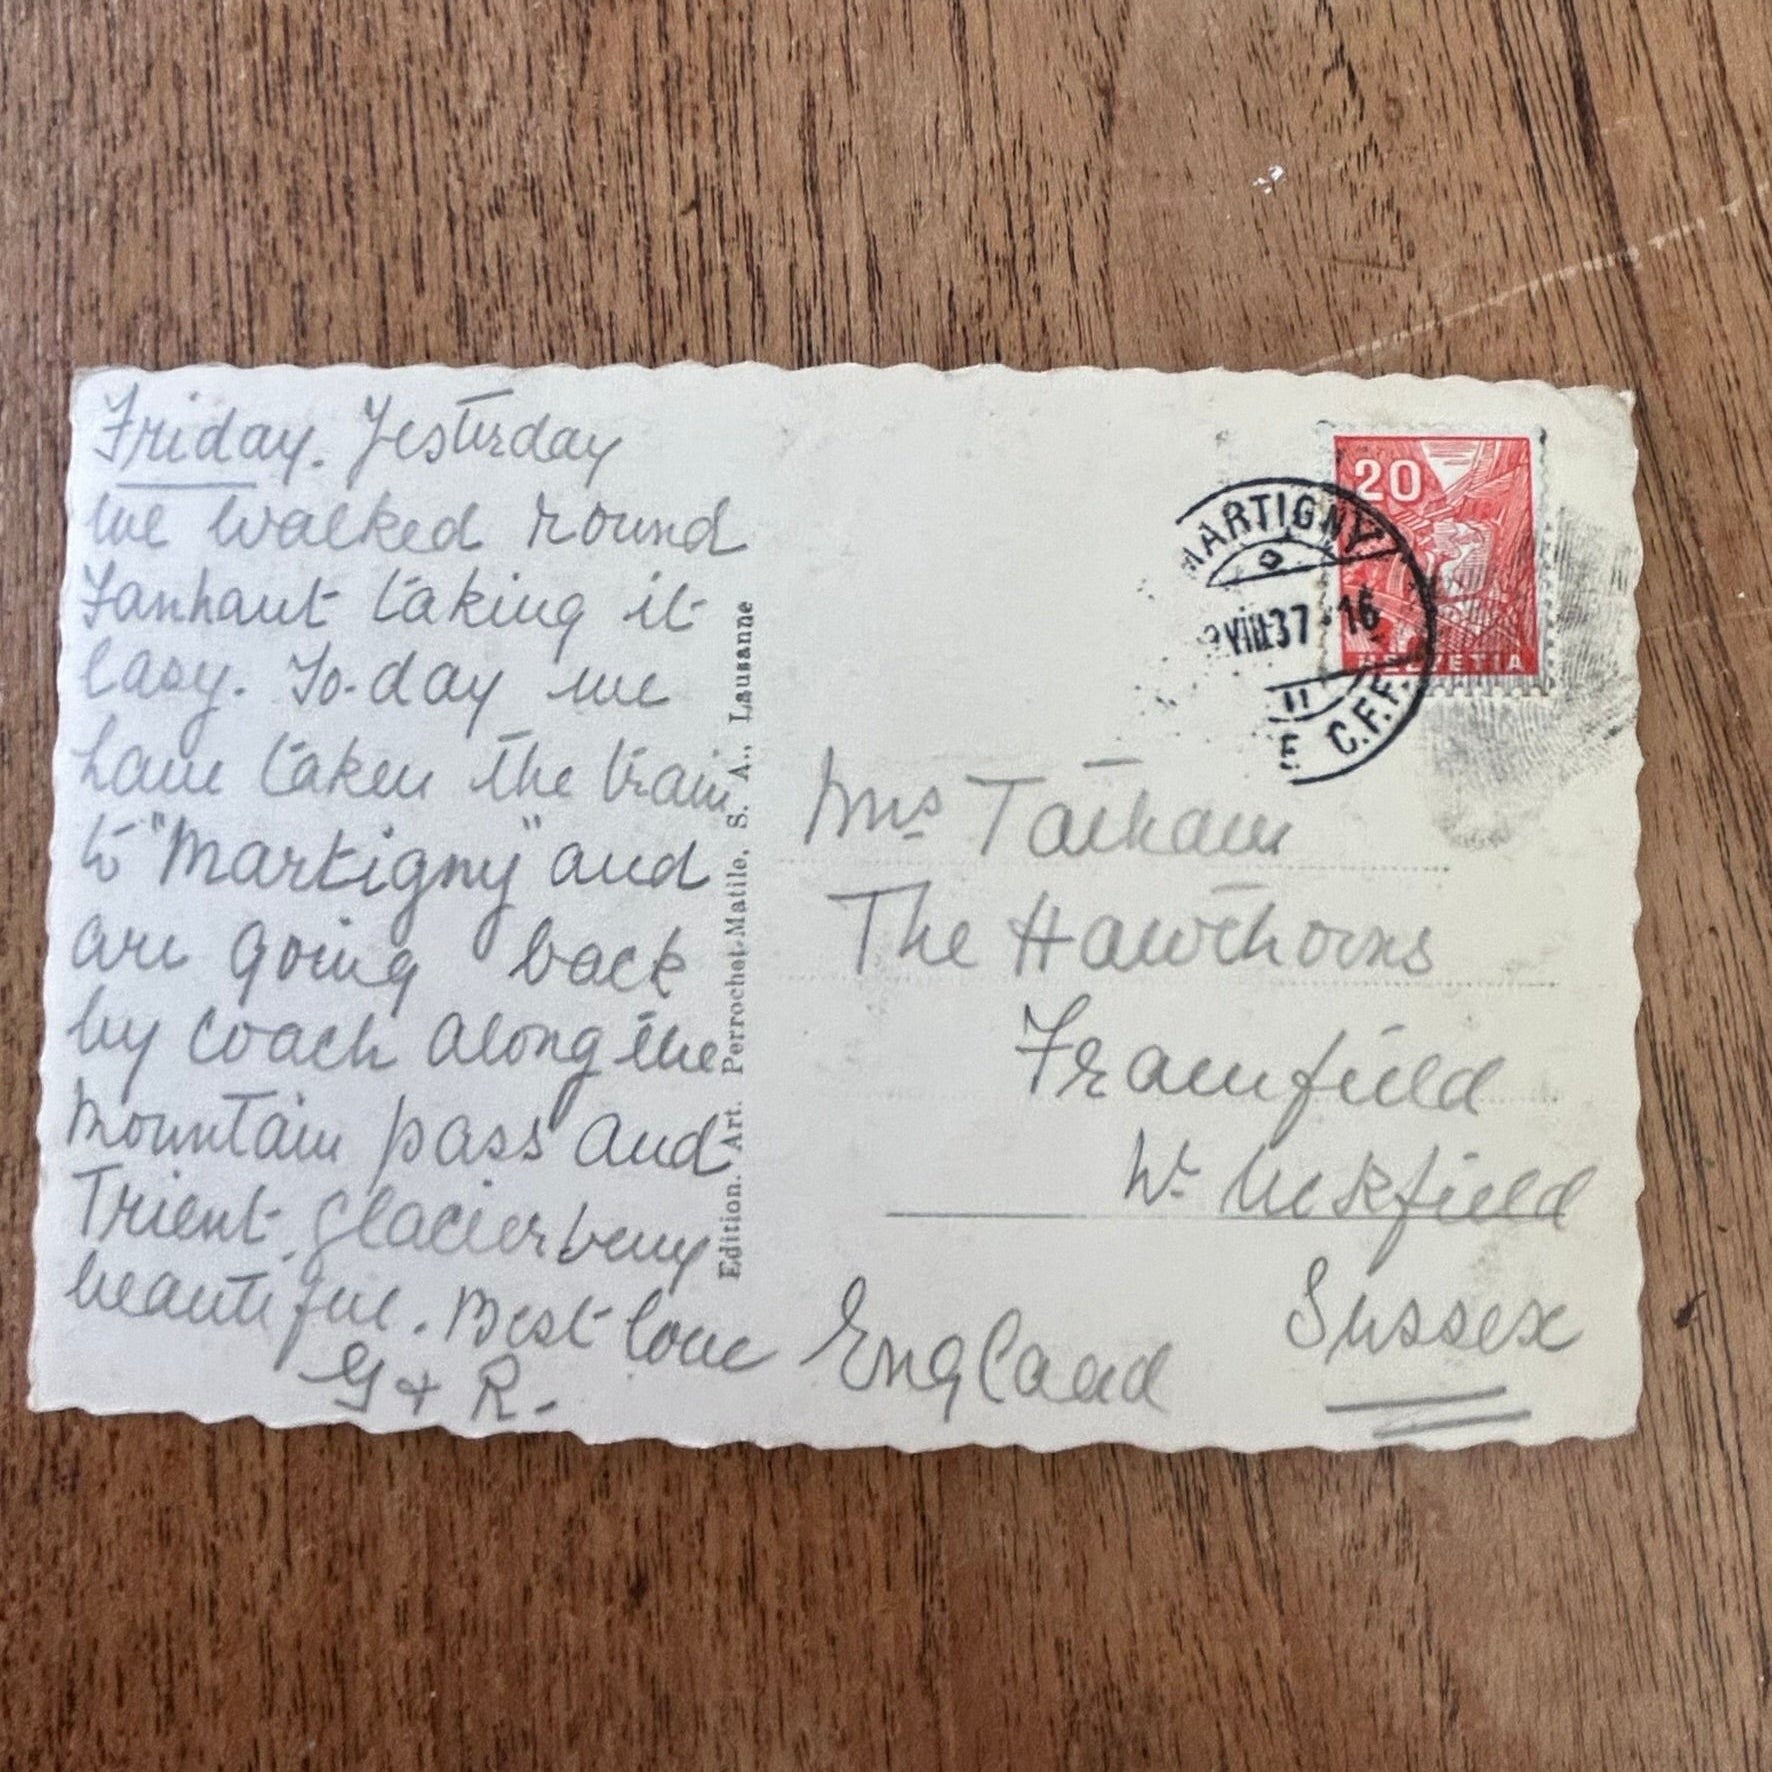 Friday. Yesterday
we walked round
Fanhaut taking it
easy. To-day we
have taken the train
to "Martigny" and
are going back
by coach along the
mountain pass and
Trient glacier very
beautiful. Best love
G + R.
Edition. Art. Perrochet-Matile, S. A., Lausanne
20
HELVETIA
MARTIGNY
VIII 37-16
C.F.F.
Mrs Tatham
The Hawthorns
Framfield
Nr Uckfield
Sussex
England